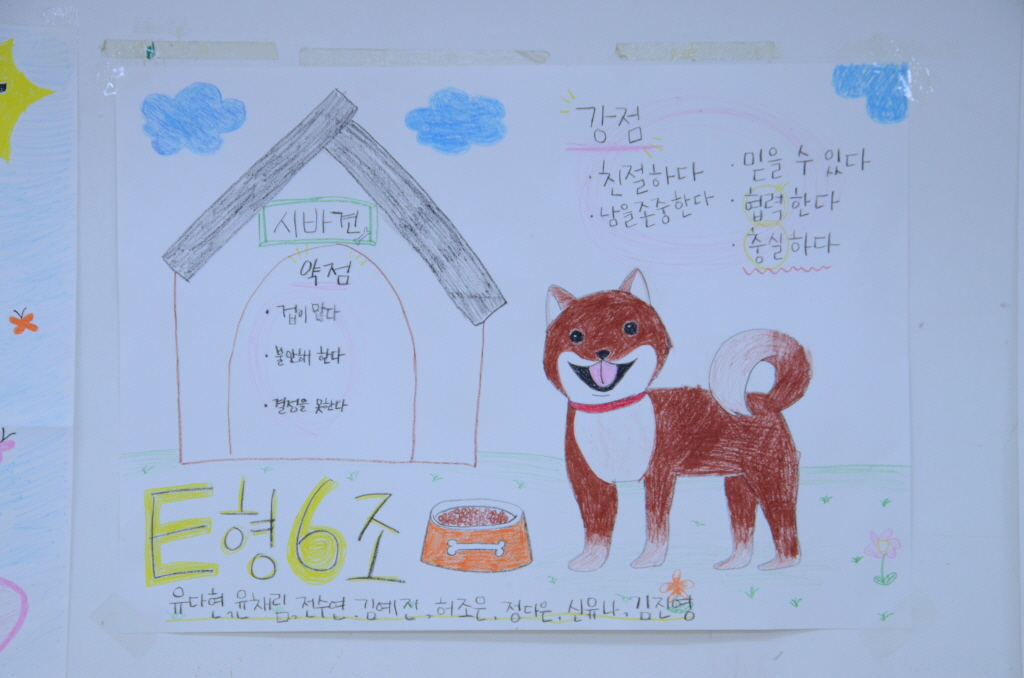 시바견
약점
· 겁이 많다
· 불안해 한다
· 결정을 못한다
강점
· 친절하다
· 남을존중한다
· 믿을 수 있다
· 협력한다
· 충실하다
E형6조
유다현, 윤채림, 전수연, 김예진, 허조은, 정다은, 신유나, 김진영